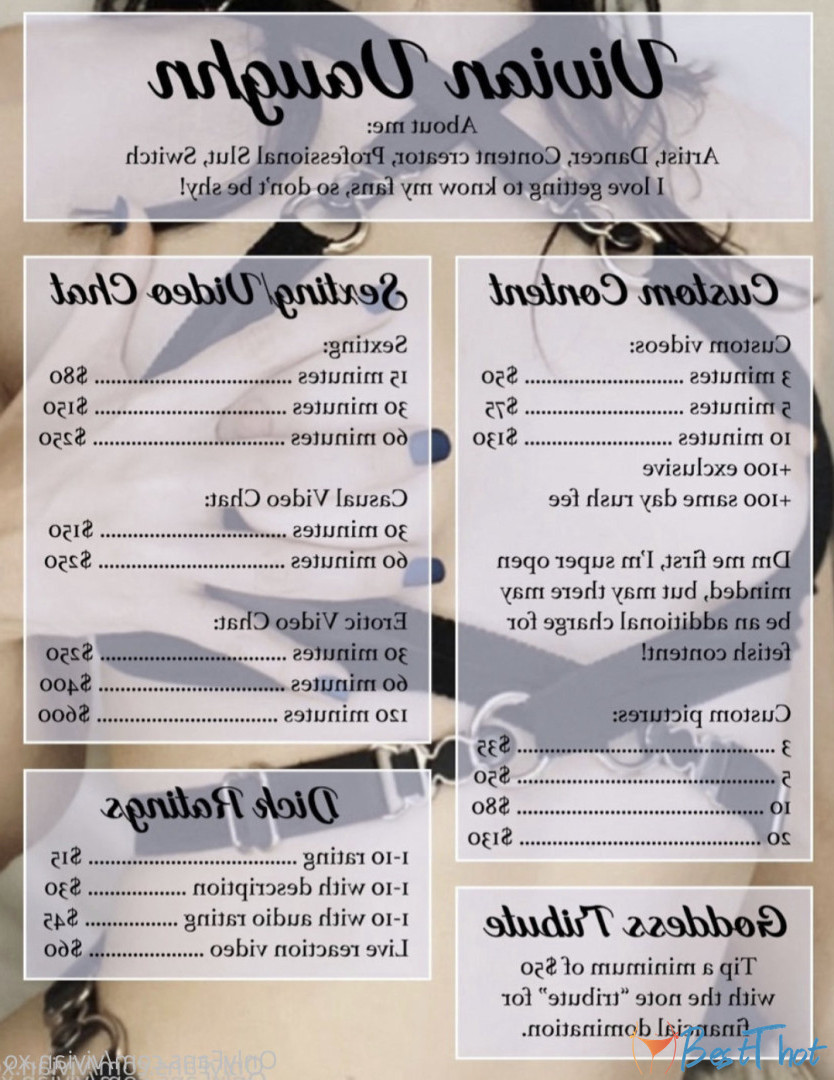 Vivian Vaughn
About me:
Artist, Dancer, Content creator, Professional Slut, Switch
I love getting to know my fans, so don't be shy!
Custom Content
Custom videos:
3 minutes ........................... $50
5 minutes ........................... $75
10 minutes ......................... $130
+100 exclusive
+100 same day rush fee
Dm me first, I'm super open
minded, but may there may
be an additional charge for
fetish content!
Custom pictures:
3 ............................................. $35
5 ............................................. $50
10 ........................................... $80
20 .......................................... $130
Goddess Tribute
Tip a minimum of $50
with the note "tribute" for
financial domination.
Sexting/Video Chat
Sexting:
15 minutes .................................. $80
30 minutes ................................. $150
60 minutes ................................. $250
Casual Video Chat:
30 minutes ................................ $150
60 minutes ................................ $250
Erotic Video Chat:
30 minutes ................................ $250
60 minutes ................................ $400
120 minutes ............................... $600
Dick Ratings
1-10 rating .................................... $15
1-10 with description ................. $30
1-10 with audio rating ................ $45
Live reaction video .................... $60
BestThot